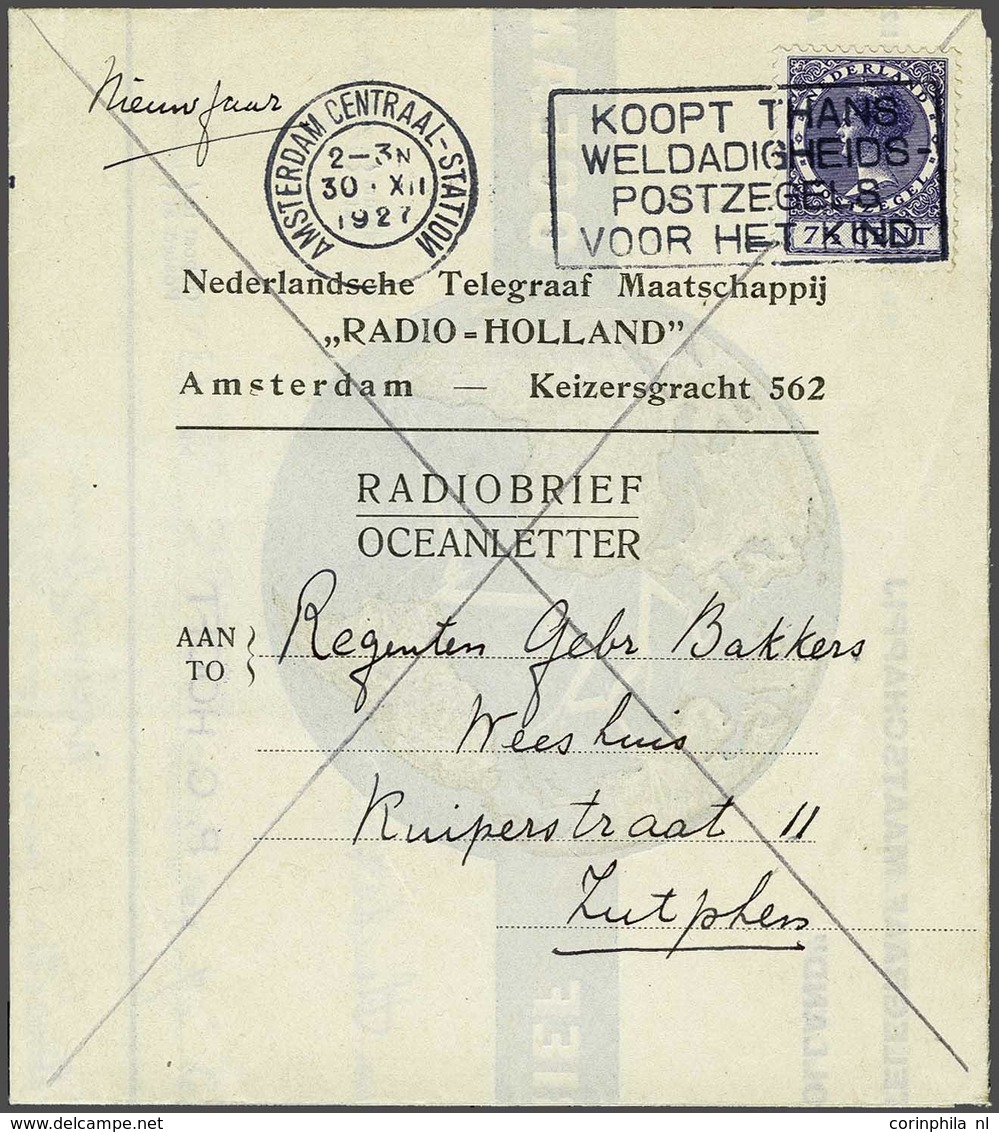 Nieuwjaar
AMSTERDAM CENTRAAL-STATION
2-3N
30 · XII
1927
KOOPT THANS
WELDADIGHEIDS-
POSTZEGELS
VOOR HET KIND
NEDERLAND
POSTZEGEL
7½ CENT
Nederlandsche Telegraaf Maatschappij
„RADIO-HOLLAND”
Amsterdam — Keizersgracht 562
RADIOBRIEF
OCEANLETTER
AAN
TO
Regenten Gebr Bakkers
Weeshuis
Kuiperstraat 11
Zutphen
corinphila nl